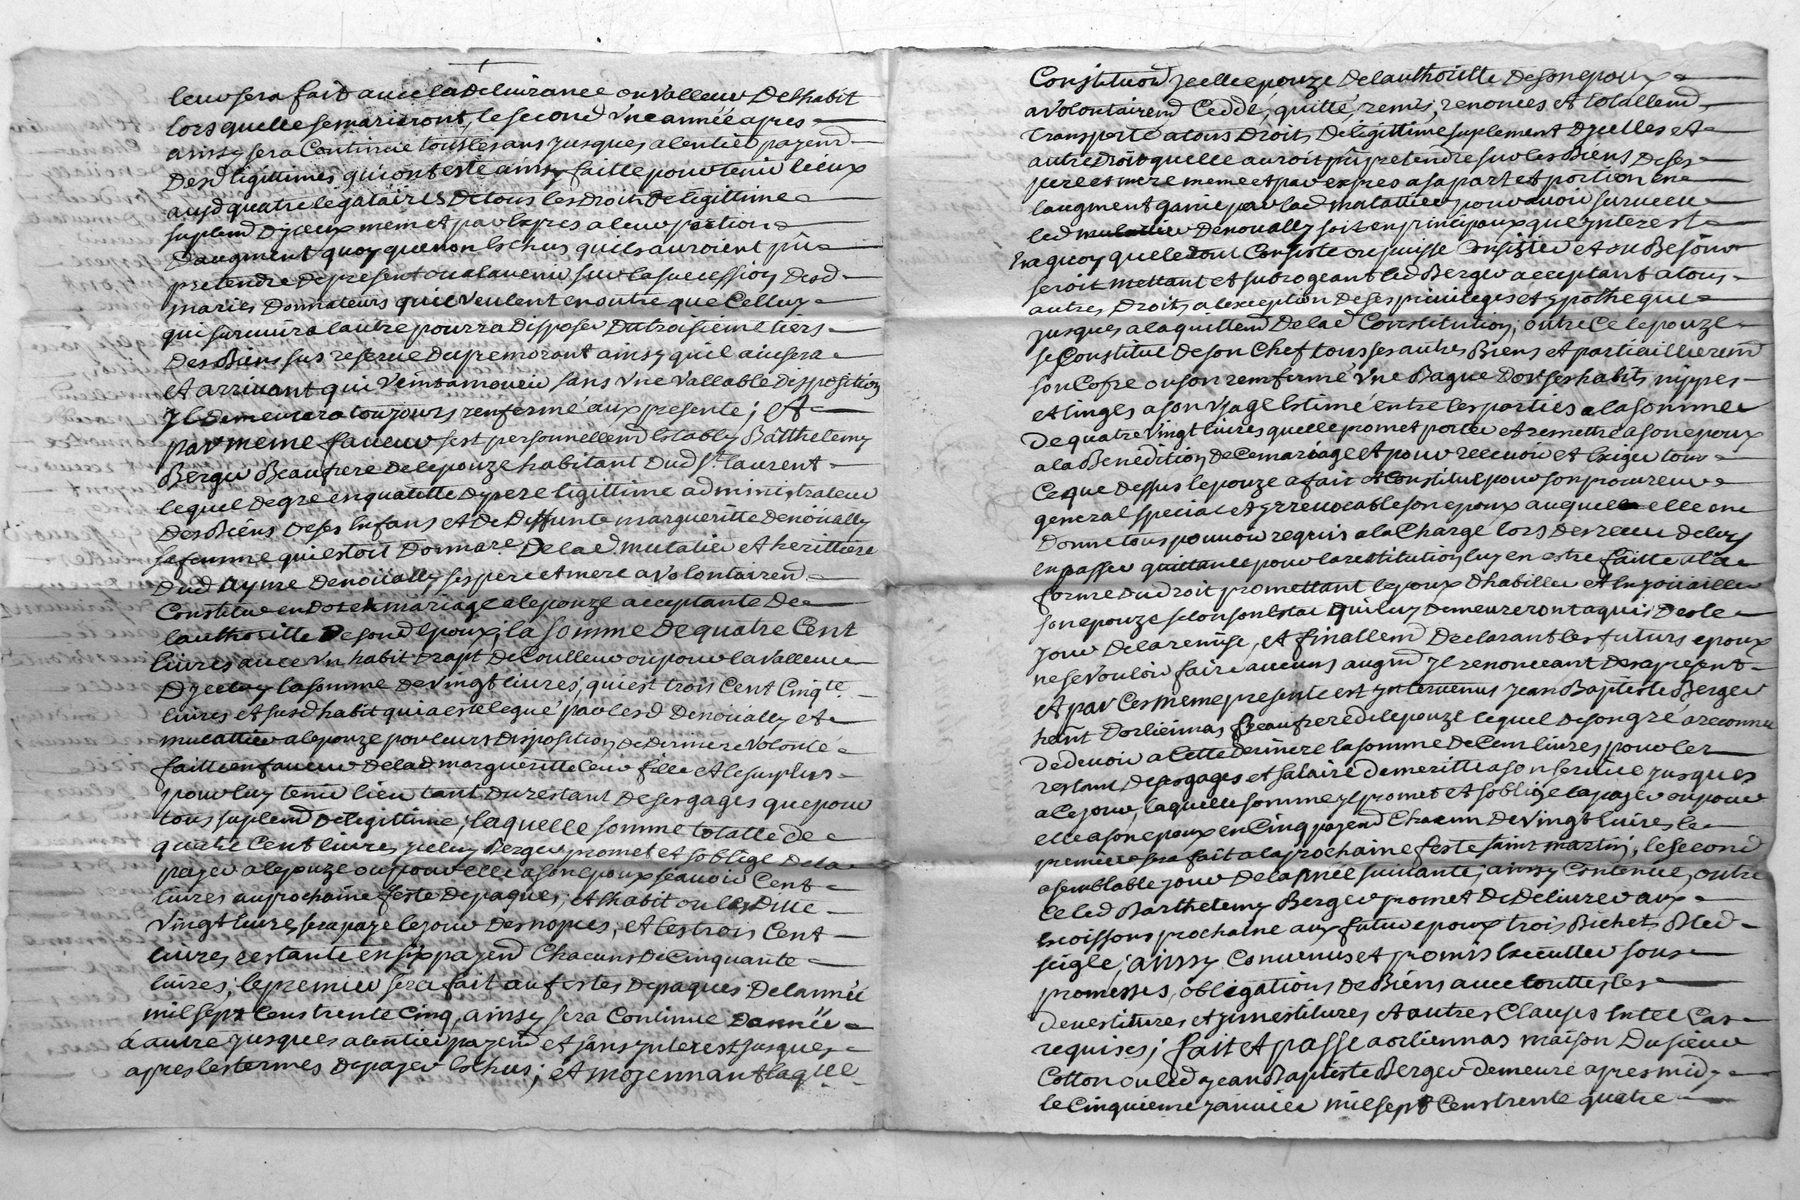 leur sera fait avec la delivrance ou valleur de lhabit
lors quelle se marieront, le second vne année apres
ainsy sera Continué tous les ans jusques a lentier payemt
desd legittimes qui ont esté ainsy faitte pour tenir lieux
ausd quatre legataires de tous les droits de legittime
suplemt dyceux meme et par expres a leur portion
daugment quoy que non Eschus quils auroient pû
pretendre de present ou a lauenir sur la succession desd
mariés Donnateurs qui veulent en outre que Celluy
qui suruiura lautre pourra disposer du troisieme tiers
des Biens sus reserué du premorant ainsy quil auisera
et arriuant qui veint a mourir sans vne vallable disposition
Jl demeurera toujours renfermé aux presente; et
par meme faueur sest personnellemt Estably Barthelemy
Berger Beaufrere de lepouze habitant dud St laurent
lequel de gré en qualitté dypere legittime administrateur
des Biens de ses Enfans et de deffunte margueritte denoüally
sa femme qui estoit Donnare de lad mutatier et herittiere
dud ayme denoüally ses pere et mere a volontairemt
Constitue en dot et mariage a lepouze acceptante de
lauthoritte de sond Epoux, la somme de quatre Cent
liures auec vn habit drapt de Coulleur ou pour la valleur
dyceluy la somme de vingt liures; qui est trois Cent Cinqte
liures et susd habit qui a esté legué par lesd denoüally et
mutattier a lepouze par leurs disposition de derniere volonté
faitte en faueur de lad margueritte leur fille et le surplus
pour luy tenir lieu tant du restant de ses gages que pour
tous suplemt de legittime; laquelle somme totalle de
quatre Cent liures yceluy Berger promet et soblige de la
payer a lepouze ou pour elle a son epoux scauoir Cent
liures au prochaine feste de paques, et habit ou lesditte
vingt liures sera payé le jour des nopces, et les trois Cent
liures restante en six payemt Chacuns de Cinquante
liures; le premier sera fait au festes de paques de lannée
mil sept Cens trente Cinq, ainsy sera Continué dannée
à autre jusques a lentier payemt et sans ynterest jusques
apres les termes de payer Eschus; et moyennant laqlle
Constitution ycelle epouze de lauthoritte de son epoux
a volontairemt Ceddé, quitté, remis, renoncés et totallemt
transporté a tous droits de legittime suplement dycelles et
autre droit quelle auroit pû pretendre sur les Biens de ses
pere et mere meme et par expres a sa part et portion en
laugment gagné par lad mutattier pour auoir suruecu
led denoually soit en principaux que ynterest
en quoy que le tout Consiste ou puisse Consister et au Besoin
seroit mettant et subrogeant led Berger acceptant a tous
autres droits a lexception de ses priuileges et ypotheque
jusques a laquittemt de lad Constitution; outre Ce lepouze
se Constitue de son Chef tous ses autres Biens et particullieremt
son Cofre ou son renfermé vne Bague dor ses habits nippes
et linges a son vsage Estimé entre les parties a la somme
de quatre vingt liures quelle promet porter et remettre a son epoux
a la Benediction de Ce mariage et pour receuoir et Exiger tous
Ce que dessus lepouze a fait et Constitué pour son procureur
general special et yrreuocable son epoux auquel elle en
donne tous pouuoir requis a la Charge lors des receu de luy
en passer quittance pour la restitution luy en estre faitte a la
forme du droit promettant lepoux dhabiller et Enjouailler
son epouze selon son Estat qui luy demeureront aqui des le
jour de la remise, et finallemt declarant les futurs epoux
ne se vouloir faire aucuns augmt yl renonceant des a present
et par Ces meme presente est ynteruenus jean Baptiste Berger
habt dorliennas Beaufrere de lepouze lequel de son gré a reconnu
de deuoir a Cette derniere la somme de Cent liures pour les
restant de ses gages et salaire de meritte a son seruice jusques
a Ce jour, laquelle somme yl promet et soblige la payer ou pour
elle a son epoux en Cinq payemt Chacun de vingt liures le
premier sera fait a la prochaine feste saint martin, le second
a semblable jour de lannée suiuante; ainsy Continué, outre
Ce led Barthelemy Berger promet de deliurer aux
moissons prochaine aux futur epoux trois Bichet Bled
seigle; ainsy Conuenus et promis Executter sous
promesses, obligations de Biens auec touttes les
deuestitures et ynuestitures et autres Clauses En tel Cas
requises; fait et passé a orliennas maison du sieur
Cotton ou led jean Baptiste Berger demeure apres midy
le Cinquieme januier mil sept Cens trente quatre